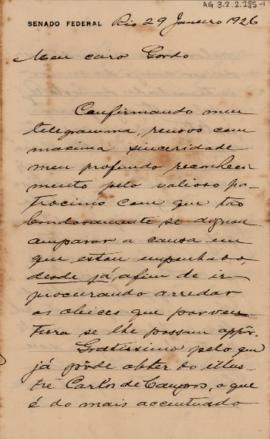 AG 3.2.2.285-1
SENADO FEDERAL Rio 29 Janeiro 1926
Meu caro Gordo
Confirmando meu
telegramma, renovo com
maxima sinceridade
meu profundo reconheci
mento pelo valioso pa-
trocinio com que tão
bondosamente se dignou
amparar a causa em
que estou empenhado,
desde já, afim de ir
procurando arredar
os alices que porven-
tura se lhe possam oppôr.
Gratissimo pelo que
já poude obter do illus-
tre Carlos de Campos, o que
é do mais accentuado